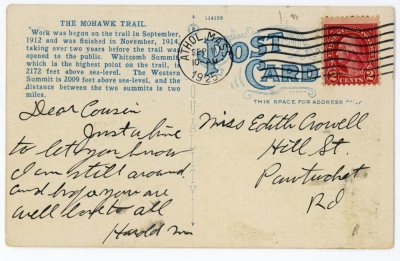 THE MOHAWK TRAIL.
Work was begun on the trail in September,
1912 and was finished in November, 1914,
taking over two years before the trail was
opened to the public. Whitcomb Summit
which is the highest point on the trail, is
2172 feet above sea-level. The Western
Summit is 2009 feet above sea-level, and the
distance between the two summits is two
miles.
114159
ATHOL, MASS.
SEP
1925
POST
CARD
THIS SPACE FOR ADDRESS ONLY
2 CENTS 2
Dear Cousin
Just a line
to let you know
I am still around
and hope you are
well love to all
Harold
Miss Edith Crowell
Hill St.
Pawtucket
RI